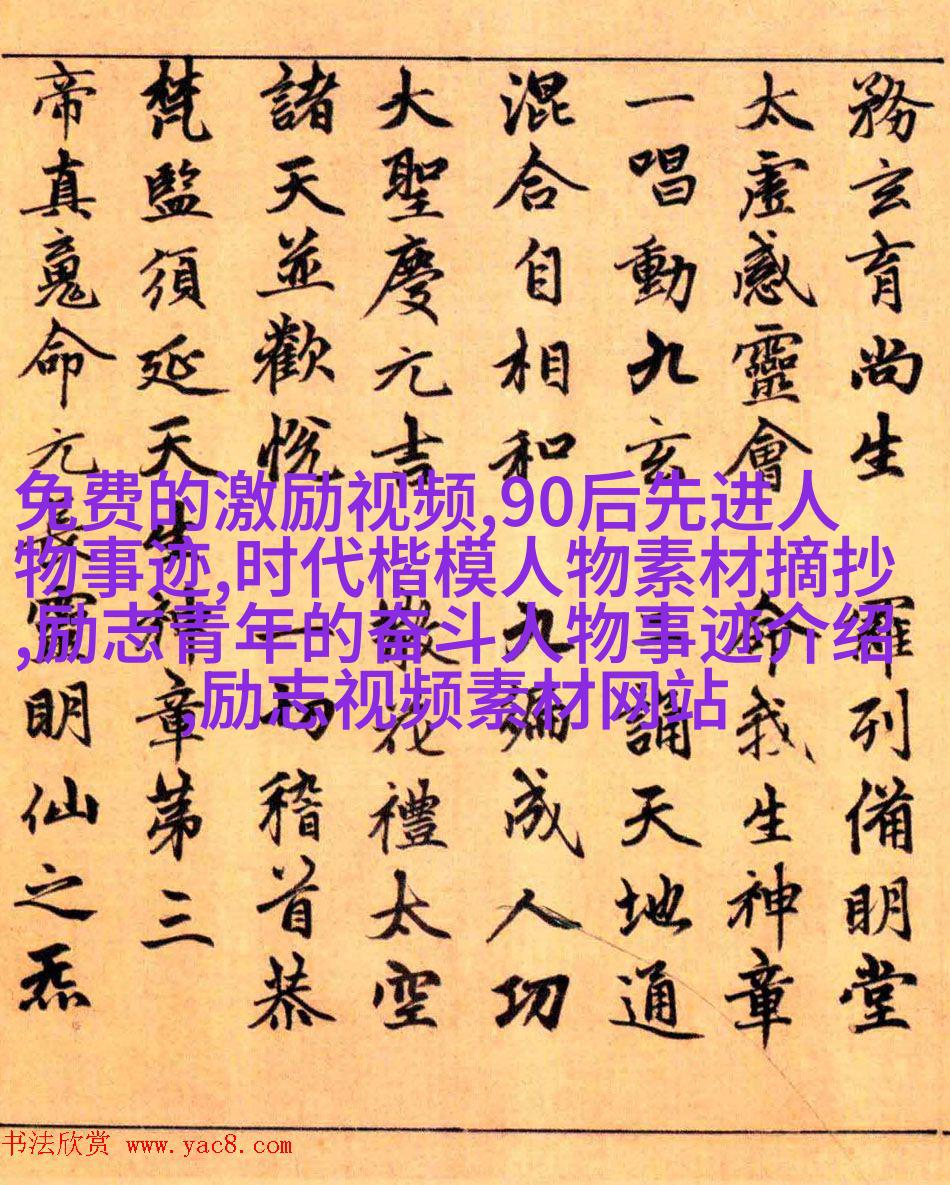 務玄育尚生 羅列備明堂
太虛感靈會 命我生神章
一唱動九玄 誦天地通
混合自相和 九彌成人功
大聖慶元吉 散花禮太空
諸天並歡悅 一切稽首恭
梵監須延天生神章第三
帝真䰟命元長靈明仙之炁
免费的激励视频,90后先进人
物事迹,时代楷模人物素材摘抄
,励志青年的奋斗人物事迹介绍
,励志视频素材网站
书法欣赏 www.yac8.com